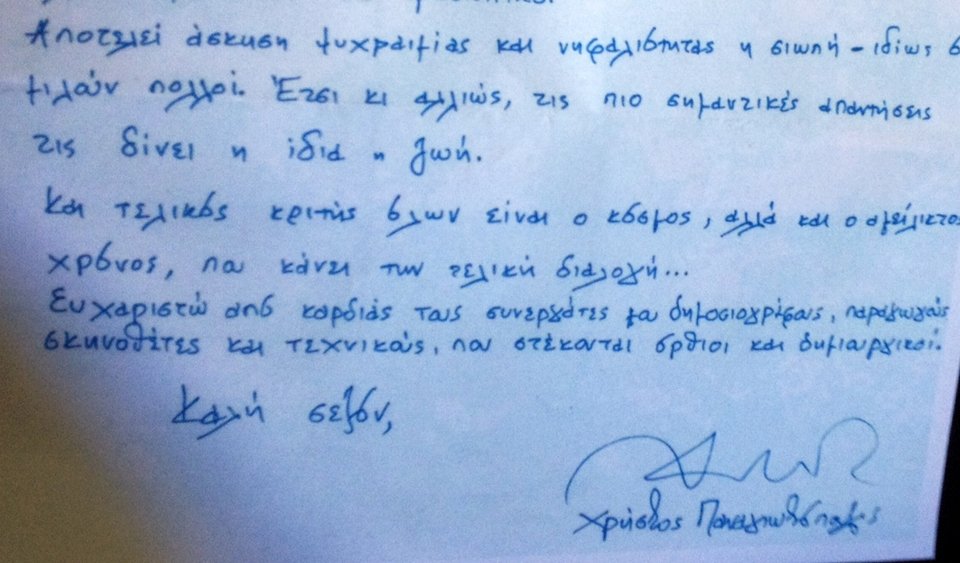 Αποτελεί άσκηση ψυχραιμίας και νηφαλιότητας η σιωπή - ιδίως
μιλούν πολλοί. Έτσι κι αλλιώς, τις πιο σημαντικές απαντήσεις
τις δίνει η ίδια η ζωή.
Και τελικός κριτής όλων είναι ο κόσμος, αλλά και ο αμείλικτος
χρόνος, που κάνει την τελική διαλογή...
Ευχαριστώ από καρδιάς τους συνεργάτες μου δημοσιογράφους, παραγωγούς
σκηνοθέτες και τεχνικούς, που στέκονται όρθιοι και δημιουργικοί.
Καλή σεζόν,
Χρήστος Παναγιωτόπουλος